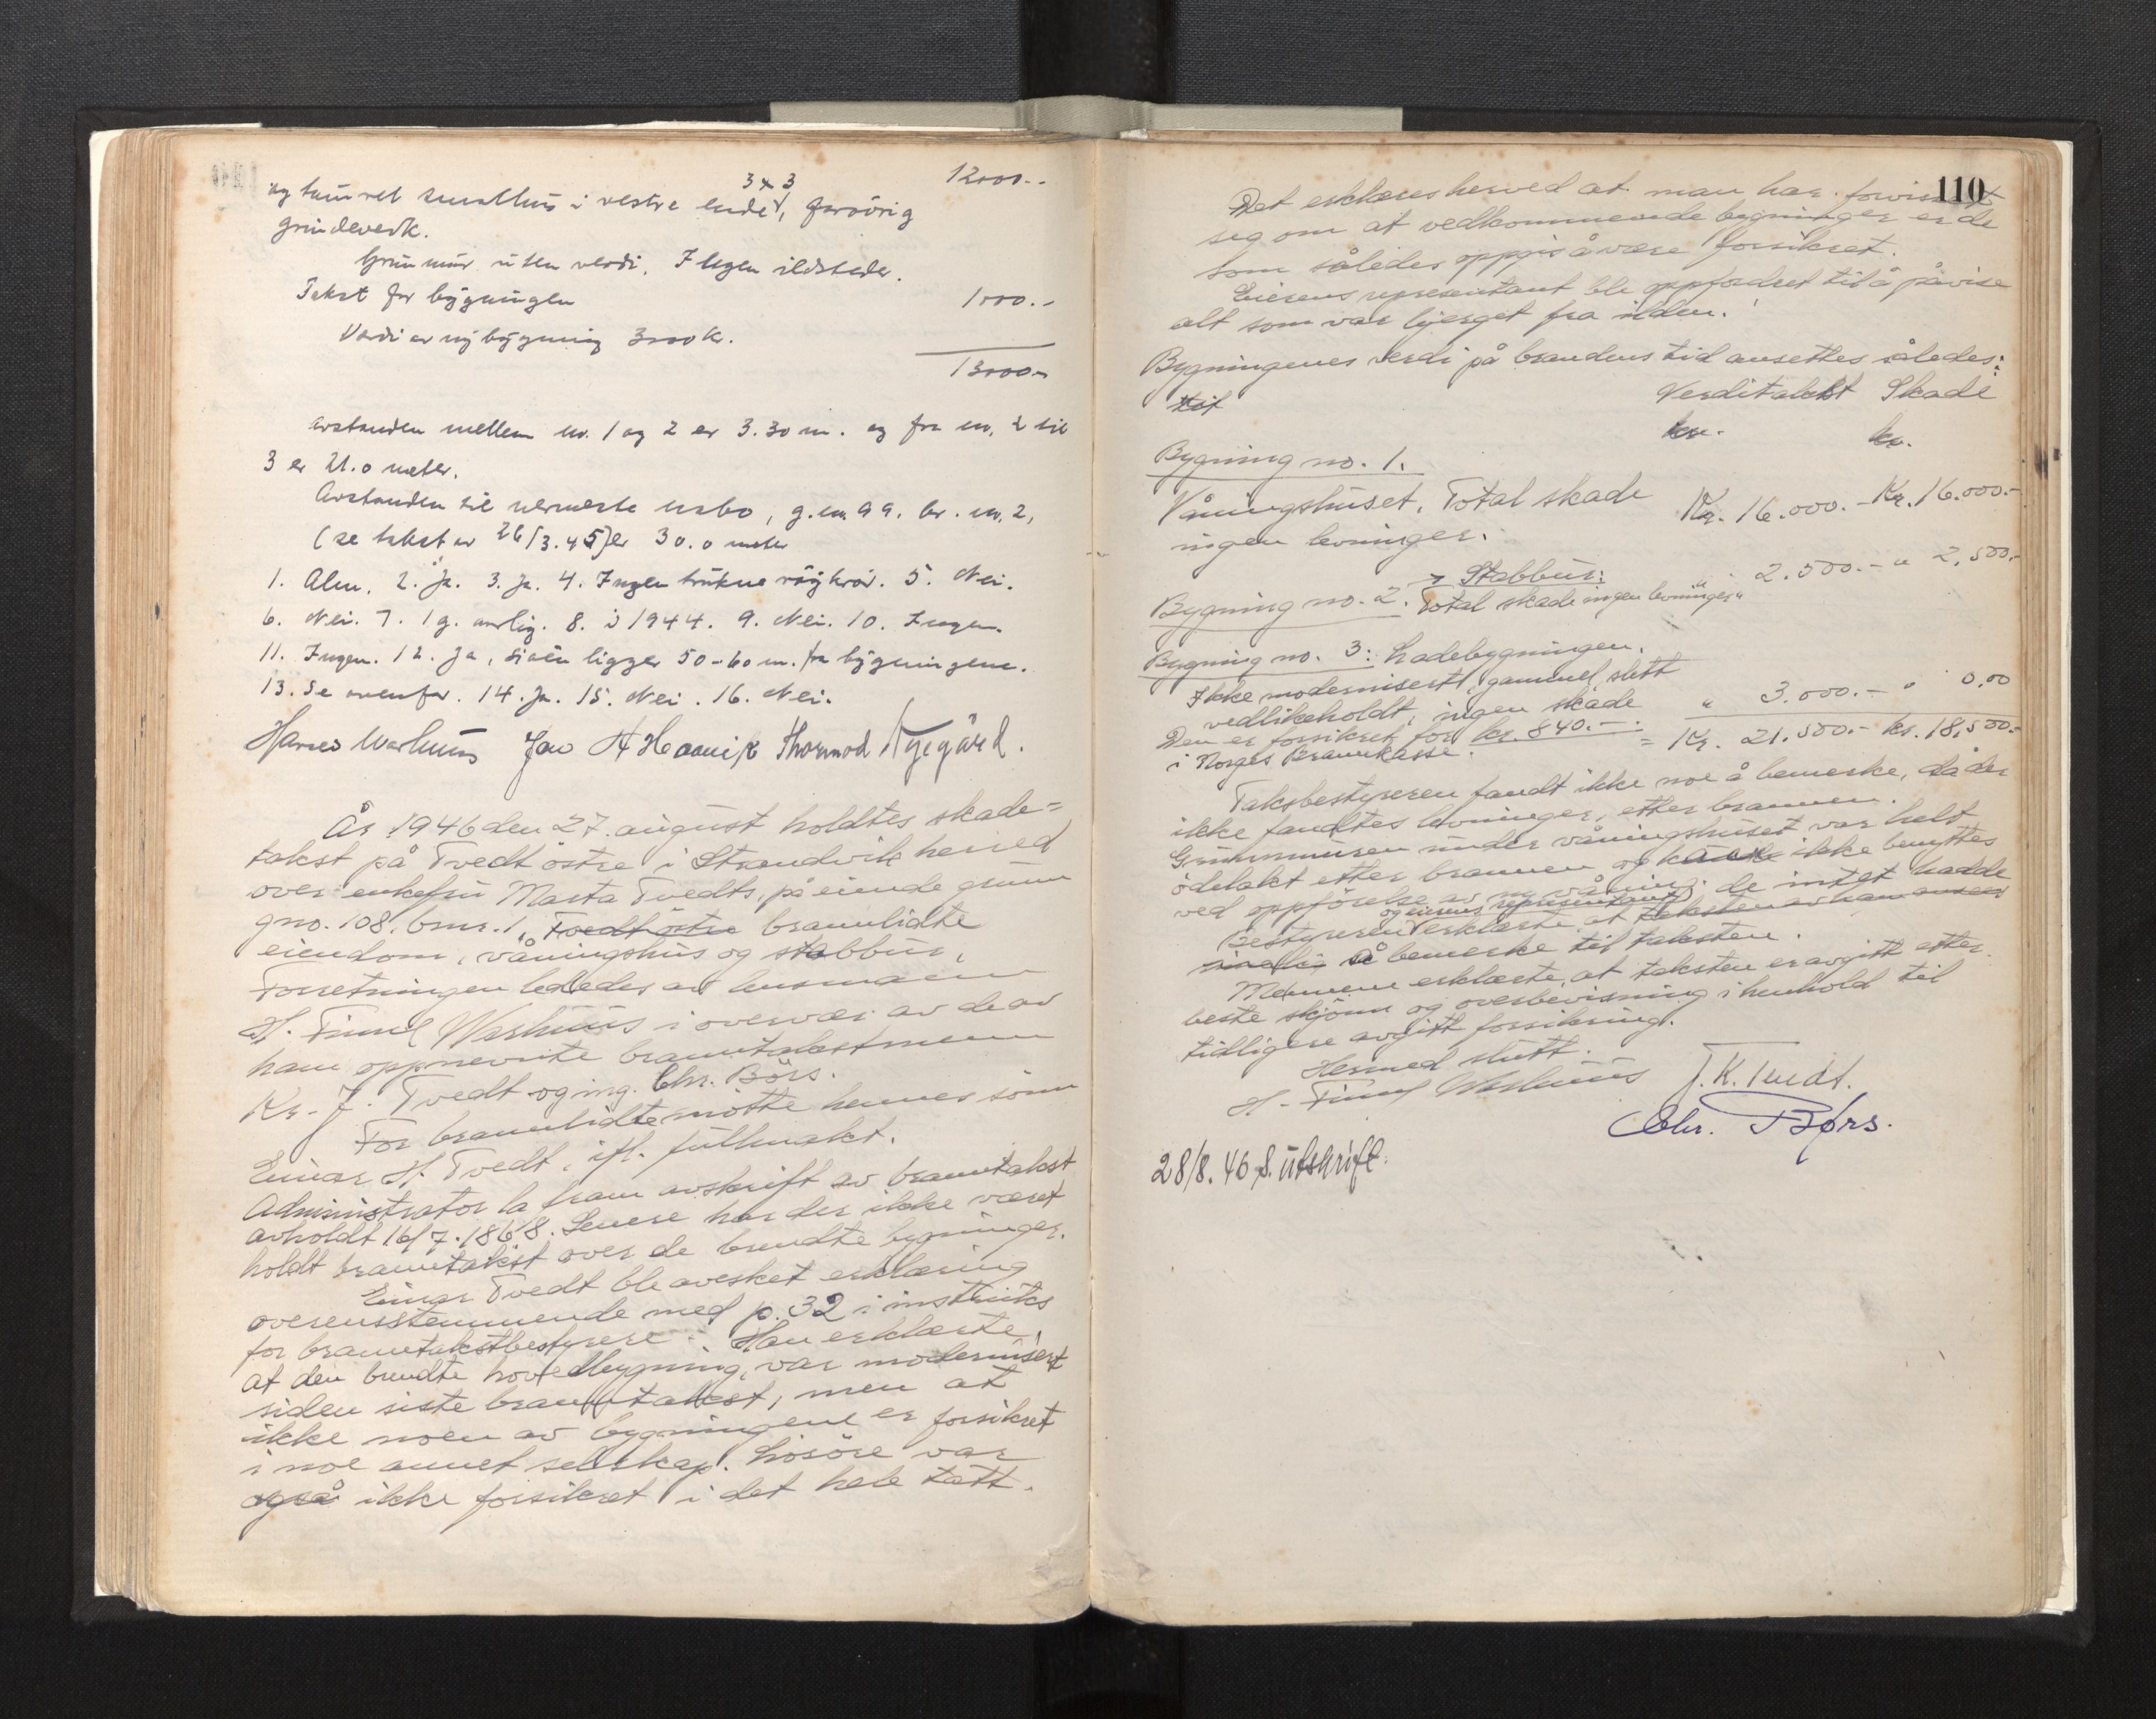 12000.-
3 x 3
og tømret smalhus i vestre ende, forøvrig
grindeverk.
Grunnmur uten verdi. Ingen ildsteder.
Takst for bygningen 1000.-
Verdi av nybygning 3000 kr.
13000.-
Avstanden mellem nr. 1 og 2 er 3.30 m. og fra nr. 2 til
3 er 21.0 meter.
Avstanden til nermeste nabo, g.nr. 99. br. nr. 2,
(se takst av 26/3.45) er 30.0 meter
1. Alm. 2. Ja. 3. Ja. 4. Ingen brukne røykrør. 5. Nei.
6. Nei. 7. 1 g. aarlig. 8. i 1944. 9. Nei. 10. Ingen.
11. Ingen. 12. Ja, sjøen ligger 50-60 m. fra bygningene.
13. Se ovenfor. 14. Ja. 15. Nei. 16. Nei.
Hans Warhuus Thormod Nygård.
År 1946 den 27. august holdtes skade=
takst på Tvedt östre i Strandvik herred
over enkefru Marta Tvedts, på eiende grunn
gno. 108, bnr. 1, Tvedt östre brannlidte
eiendom, våningshus og stabbur.
Forretningen lededes av lensmann
H. Finne Warhuus i overvær av de av
ham oppnevnte branntakstmenn
Kr. J. Tvedt og ing. Chr. Börs.
For brannlidte mötte hennes sönn
Einar H. Tvedt, ifl. fullmakt.
Administrator la fram avskrift av branntakst
avholdt 16/7. 1868. Senere har der ikke været
holdt branntakst over de brendte bygninger.
Einar Tvedt ble avesket erklæring
overensstemmende med p. 32 i instruks
for branntakstbestyrere. Han erklærte,
at den brendte hovedbygning var modernisert
siden siste branntakst, men at
ikke noen av bygningene er forsikret
i noe annet selskap. Lösöre var
også ikke forsikret i det hele tatt.
110
Det erklæres herved at man har forvisset
seg om at vedkommende bygninger er de
som således oppgis å være forsikret.
Eierens representant ble oppfordret til å påvise
alt som var bjerget fra ilden.
Bygningenes verdi på brandens tid ansettes således:
Verditakst Skade
kr. kr.
Bygning no. 1.
Våningshuset. Total skade Kr. 16.000.- Kr. 16.000.-
ingen levninger.
Stabbur:
Bygning no. 2. Total skade ingen levninger " 2.500.- " 2,500.-
Bygning no. 3: Ladebygningen.
Ikke modernisert, gammel, slett
vedlikeholdt, ingen skade " 3.000.- " 0,00
Den er forsikret for kr. 840.- = Kr. 21.500.- kr. 18,500.-
i Norges Brannkasse.
Taksbestyreren fandt ikke noe å bemerke, da der
ikke fandtes levninger, etter brannen.
Grunnmuren under våningshuset var helt
ödelakt etter brannen og kan ikke benyttes
ved oppförelse av ny våning.
og eierens representant
Bestyreren erklærte at de intet hadde
å bemerke til taksten.
Mennene erklærte, at taksten er avgitt etter
beste skjönn og overbevisning i henhold til
tidligere avgitt forsikring.
Hermed slutt.
H. Finne Warhuus J. K. Tvedt.
Chr. Børs.
28/8. 46 S. utskrift.